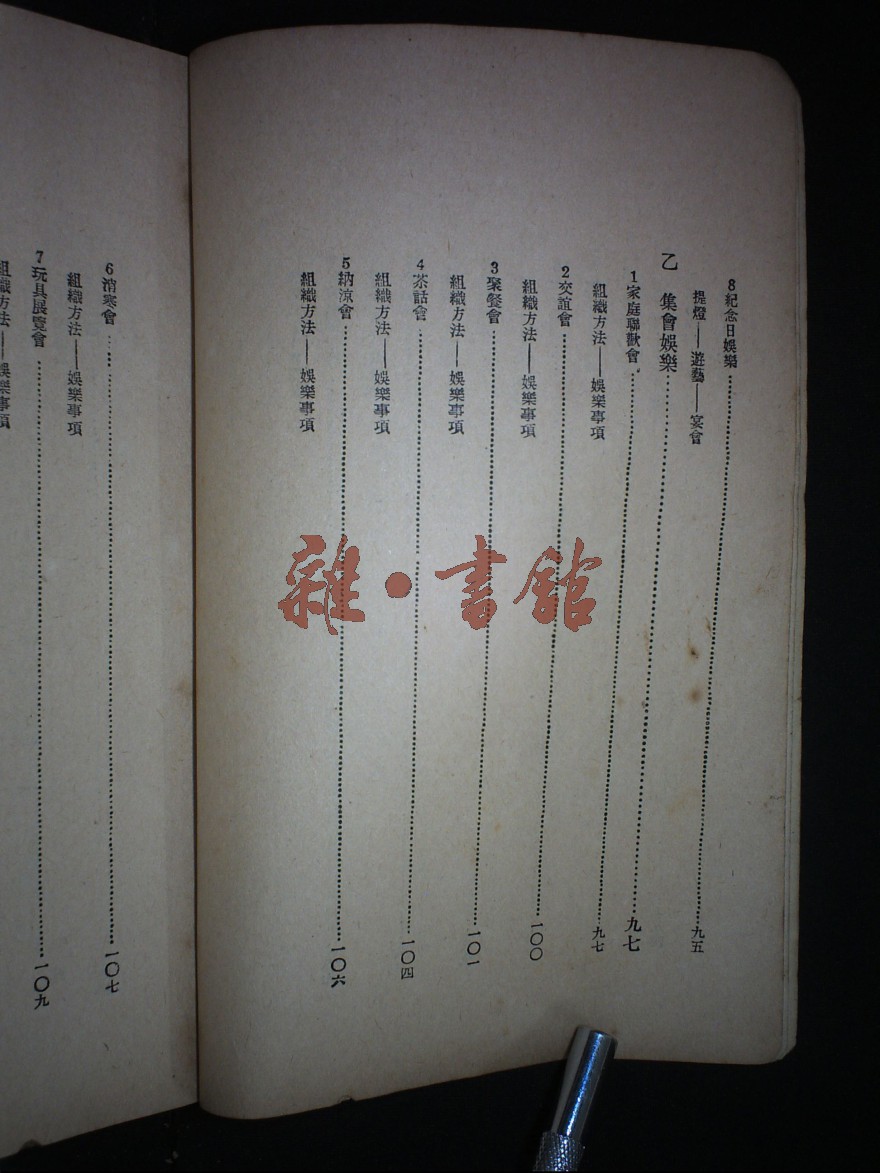 8紀念日娛樂……九五
提燈——遊藝——宴會
乙 集會娛樂……九七
1家庭聯歡會……九七
組織方法——娛樂事項
2交誼會……一〇〇
組織方法——娛樂事項
3聚餐會……一〇一
組織方法——娛樂事項
4茶話會……一〇四
組織方法——娛樂事項
5納涼會……一〇六
組織方法——娛樂事項
6消寒會……一〇七
組織方法——娛樂事項
7玩具展覽會……一〇九
組織方法——娛樂事項
雜·書館